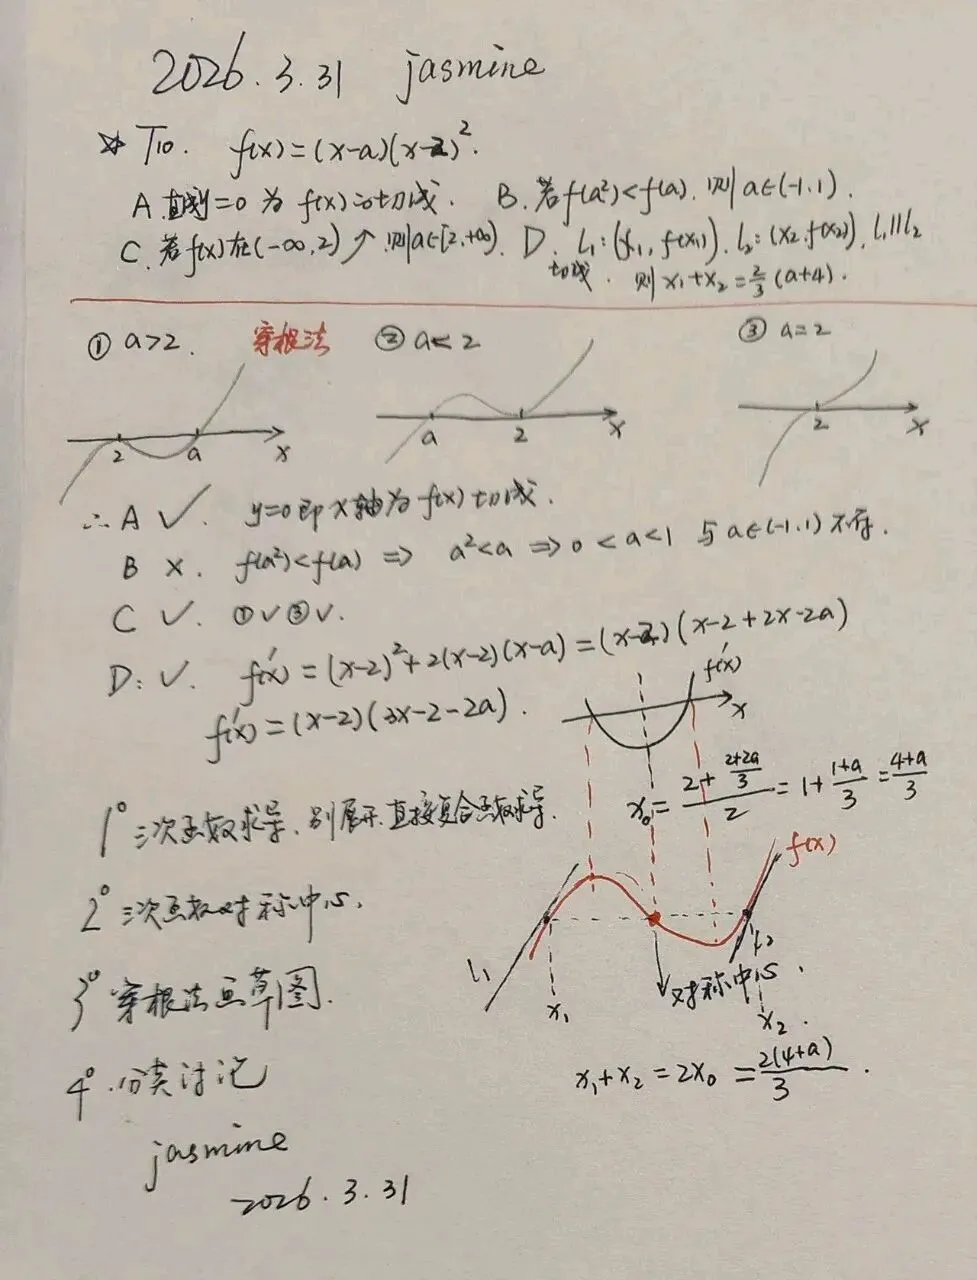 2026.3.31 jasmine
☆ T10. f(x)=(x-a)(x-2)².
A.直线y=0为f(x)的切线. B.若f(a²)<f(a).则a∈(-1.1).
C.若f(x)在(-∞,2)↗.则a∈[2,+∞). D. l₁:(x₁,f(x₁)). l₂:(x₂,f(x₂)), l₁∥l₂
切线. 则x₁+x₂=2/3(a+4).
① a>2. 穿根法 ② a<2 ③ a=2
2 a x a 2 x 2 x
∴A ✓. y=0即x轴为f(x)切线.
B ×. f(a²)<f(a) ⇒ a²<a ⇒ 0<a<1 与a∈(-1.1)不符.
C ✓. ①✓③✓.
D: ✓. f'(x)=(x-2)²+2(x-2)(x-a)=(x-2)(x-2+2x-2a)
f'(x)=(x-2)(3x-2-2a).
f'(x)
x
x₀=(2+(2+2a)/3)/2=1+(1+a)/3=(4+a)/3
1° 三次函数求导、别展开.直接复合函数求导.
f(x)
2° 三次函数对称中心.
l₁ l₂
对称中心.
3° 穿根法画草图.
x₁ x₂
x₁+x₂=2x₀=2(4+a)/3.
4°.分类讨论
jasmine
2026.3.31